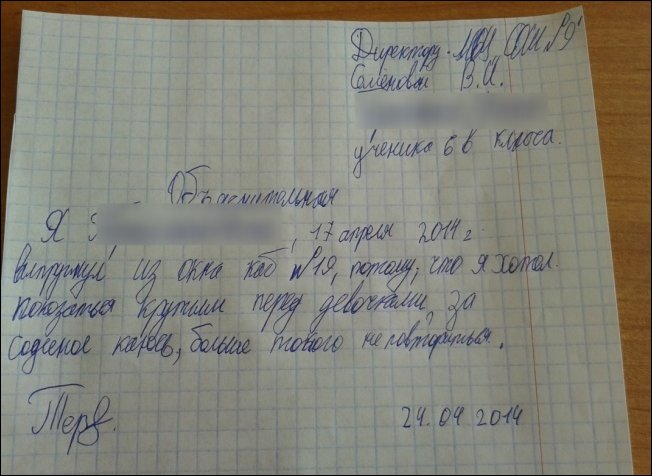 Директору МОУ СОШ №9
Семеновой В.И.
ученика 6 в класса.
Объяснительная
Я , 17 апреля 2014 г.
выпрыгнул из окна каб №19, потому, что я хотел
показаться крутым перед девочками, за
содееное каюсь, больше токого не повториться.
24.04.2014